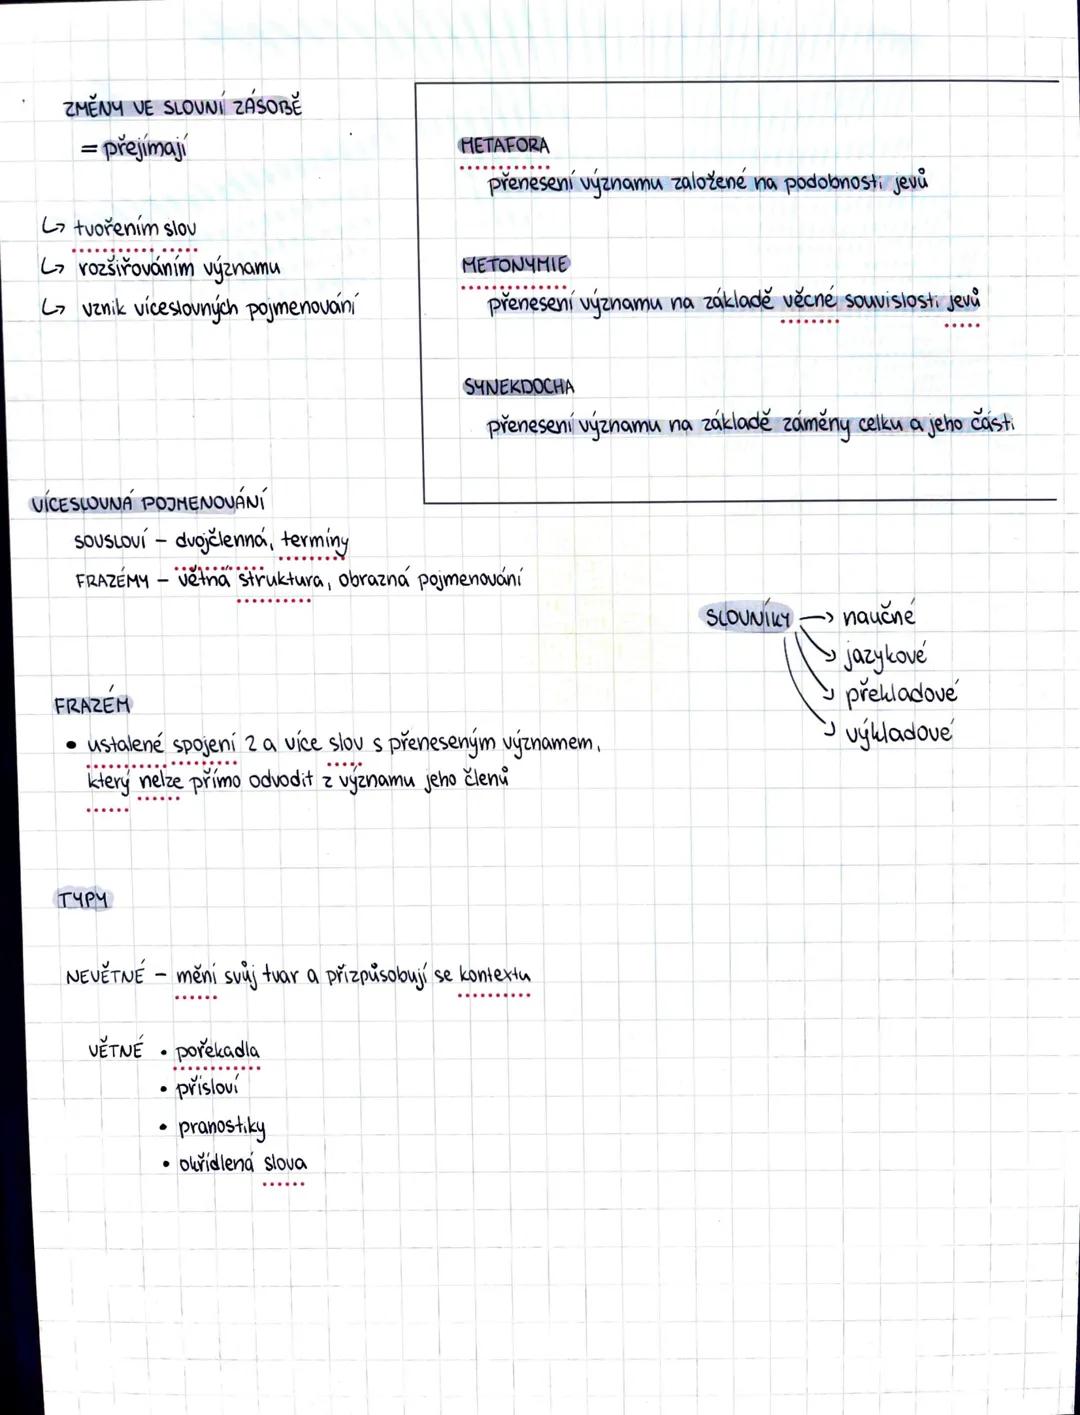 ZMĚNY VE SLOVNÍ ZÁSOBĚ
= přejímají
↳ tvořením slov
↳ rozšiřováním významu
↳ vznik víceslovných pojmenování
METAFORA
přenesení významu založené na podobnosti jevů
METONYMIE
přenesení významu na základě věcné souvislosti jevů
SYNEKDOCHA
přenesení významu na základě záměny celku a jeho části
VÍCESLOVNÁ POJMENOVÁNÍ
SOUSLOVÍ – dvojčlenná, termíny
FRAZÉMY – větná struktura, obrazná pojmenování
SLOVNÍKY → naučné
jazykové
překladové
výkladové
FRAZÉM
• ustálené spojení 2 a více slov s přeneseným významem,
který nelze přímo odvodit z významu jeho členů
TYPY
NEVĚTNÉ – mění svůj tvar a přizpůsobují se kontextu
VĚTNÉ • pořekadla
• přísloví
• pranostiky
• okřídlená slova